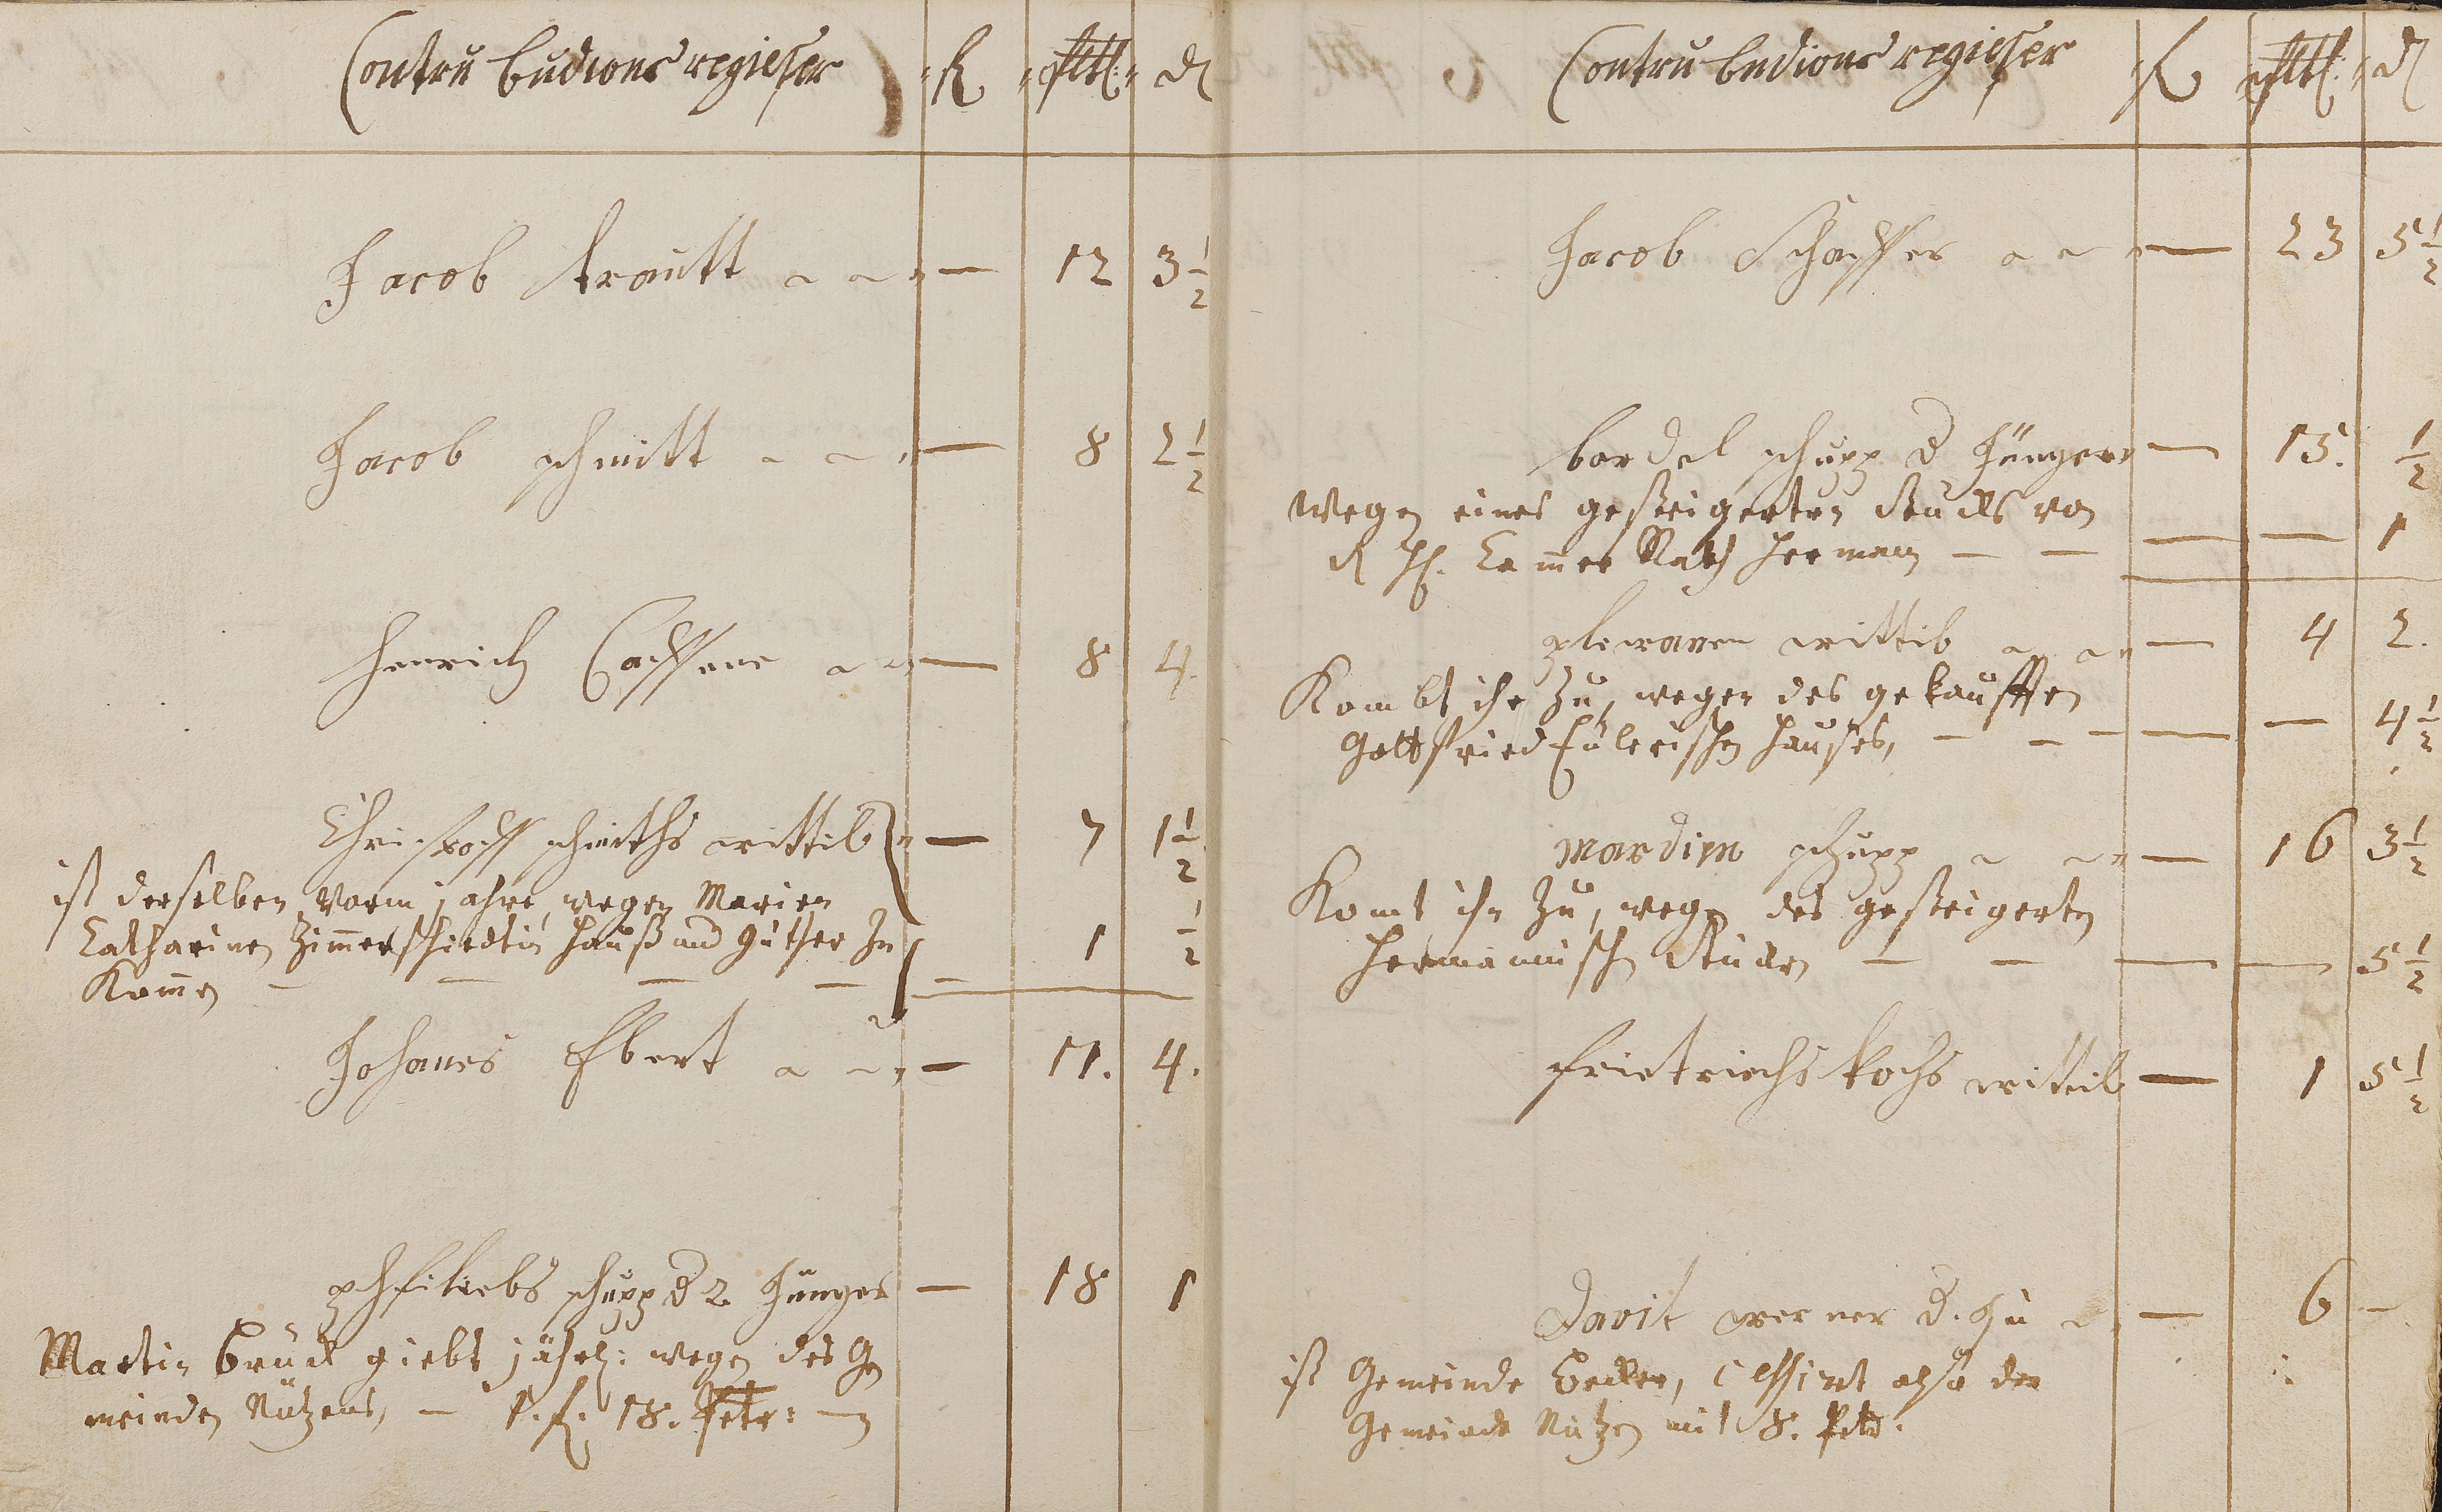 Contru budions regiester fl pttl: d
Jacob trautt — 12 3 1/2
Jacob schmitt — 8 2 1/2
Henrich — 8 4.
Christoff schmiths wittib — 7 1 1/2
ist derselben vorm jahre, wegen Marien
Catharinen Zimmerschiedtin hauß und güther zu 1 1/2
Kommen — — — — —
Johanes Ebert — 11. 4.
schupp d 2. Jünger — 18 1
Martin Brück giebt jährl: wegen des Ge
meinden Nutzens, — 1. fl. 18. petr: —
Contru budions regiester fl pttl: d
Jacob Schaffer — 23 5 1/2
bardel schupp d Jünger — 15. 1/2
wegen eines gesteigerten stücks von
H. Cammer Rath Herman — — — — 1
wittib — 4 2.
Kombt ihr zu, wegen des gekaufften
Gottfried Eulerischen hauses, — — — — — 4 1/2
Mardin schupp — 16 3 1/2
Komt ihm zu, wegen des gesteigerten
Hermannischen stücken — — — — 5 1/2
frietriechs kochs wittib — 1 5 1/2
Davit werner d. Ju — 6 —
ist Gemeinde Becker, cessirt also der
Gemeinde Nutzen mit 8. petr: